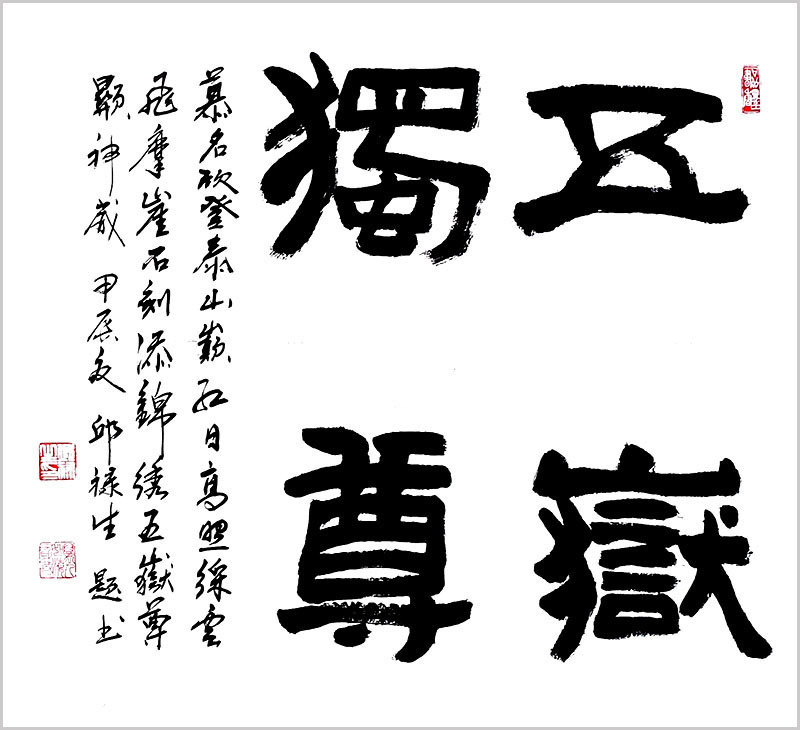 五嶽
獨尊
慕名欣登泰山巅红日高照綵雲
飛摩崖石刻添錦绣五嶽尊
顯神威 甲辰夏 邱禄生 题书